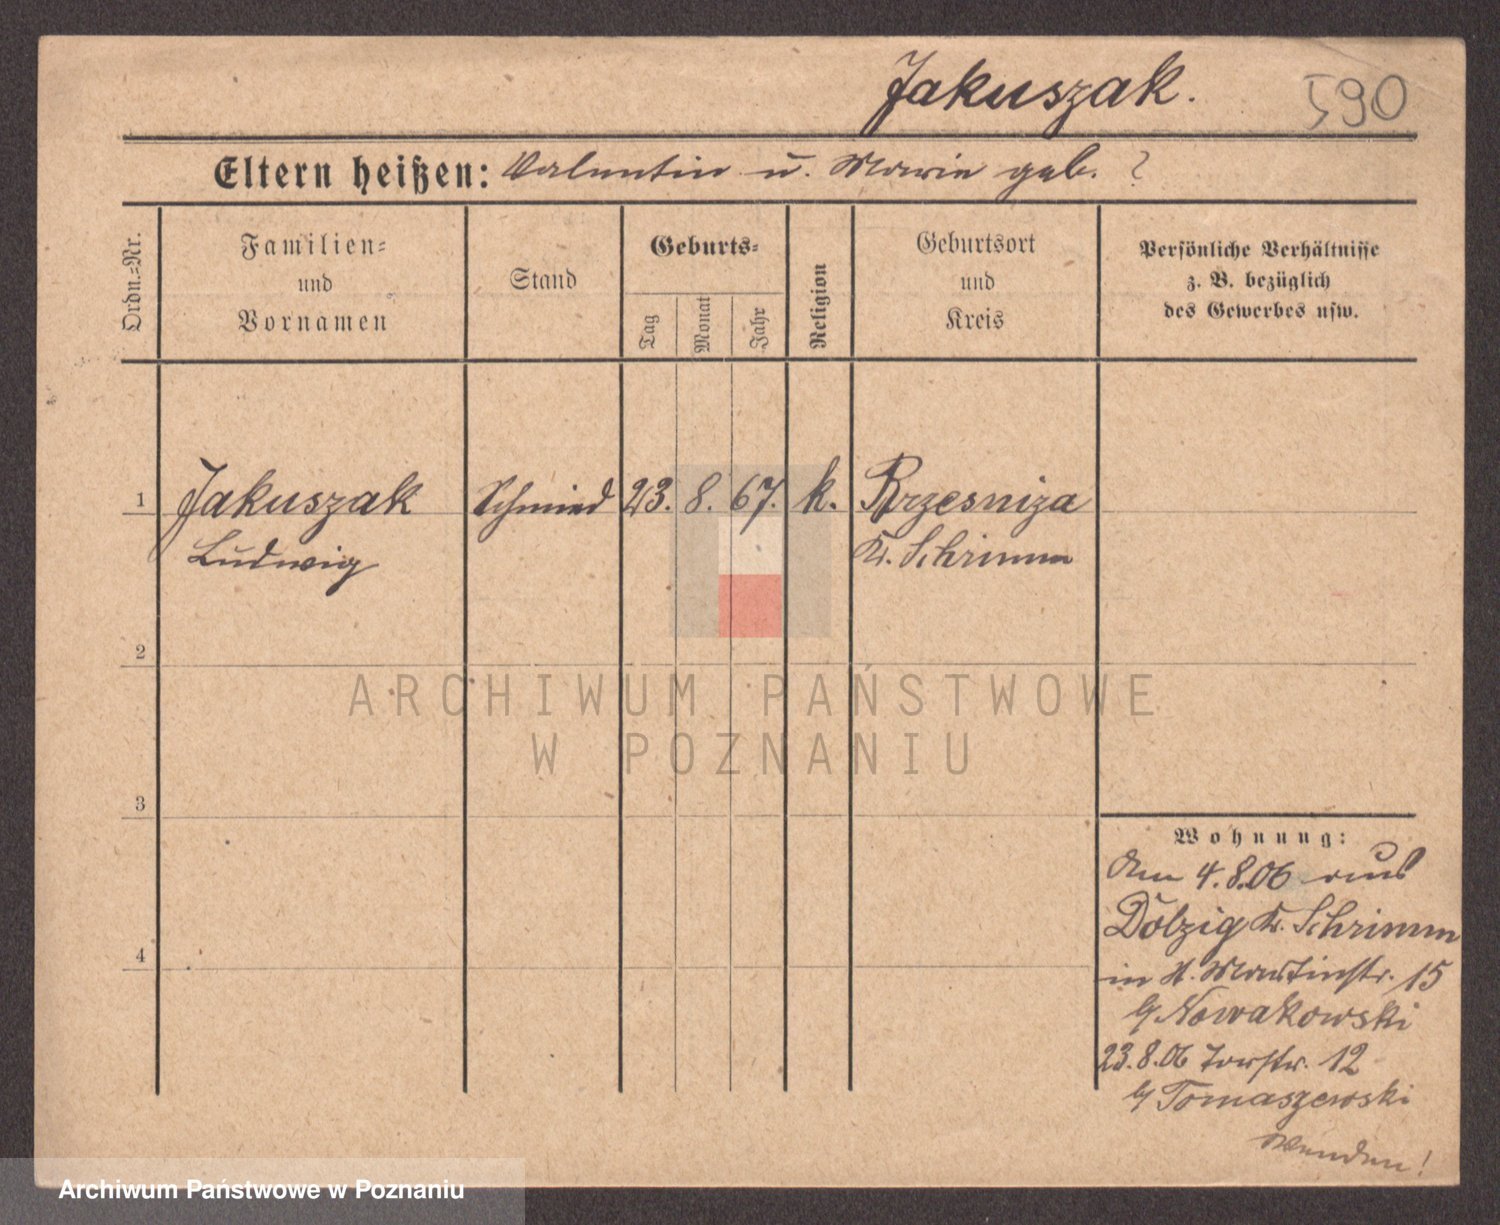 Jakuszak.
590
Eltern heißen: Valentin u. Marie geb. ?
Ordn.=Nr.
Familien=
und
Vornamen
Stand
Geburts=
Tag
Monat
Jahr
Religion
Geburtsort
und
Kreis
Persönliche Verhältnisse
z. B. bezüglich
des Gewerbes usw.
1 Jakuszak Schmied 23. 8. 67. k. Brzesniza
Ludwig Kr. Schrimm
2
3
4
Wohnung:
Am 4.8.06 aus
Dolzig Kr. Schrimm
in St. Martinstr. 15
b/ Nowakowski
23.8.06 Torstr. 12
b/ Tomaszewski
wenden!
ARCHIWUM PAŃSTWOWE
W POZNANIU
Archiwum Państwowe w Poznaniu